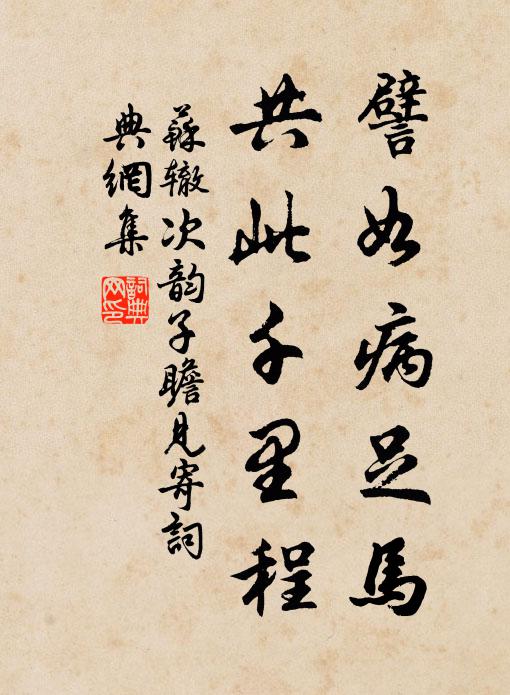 譬如病足馬
共此千里程
蘇辙次韵子瞻見寄詞
典網集
詞典
网印